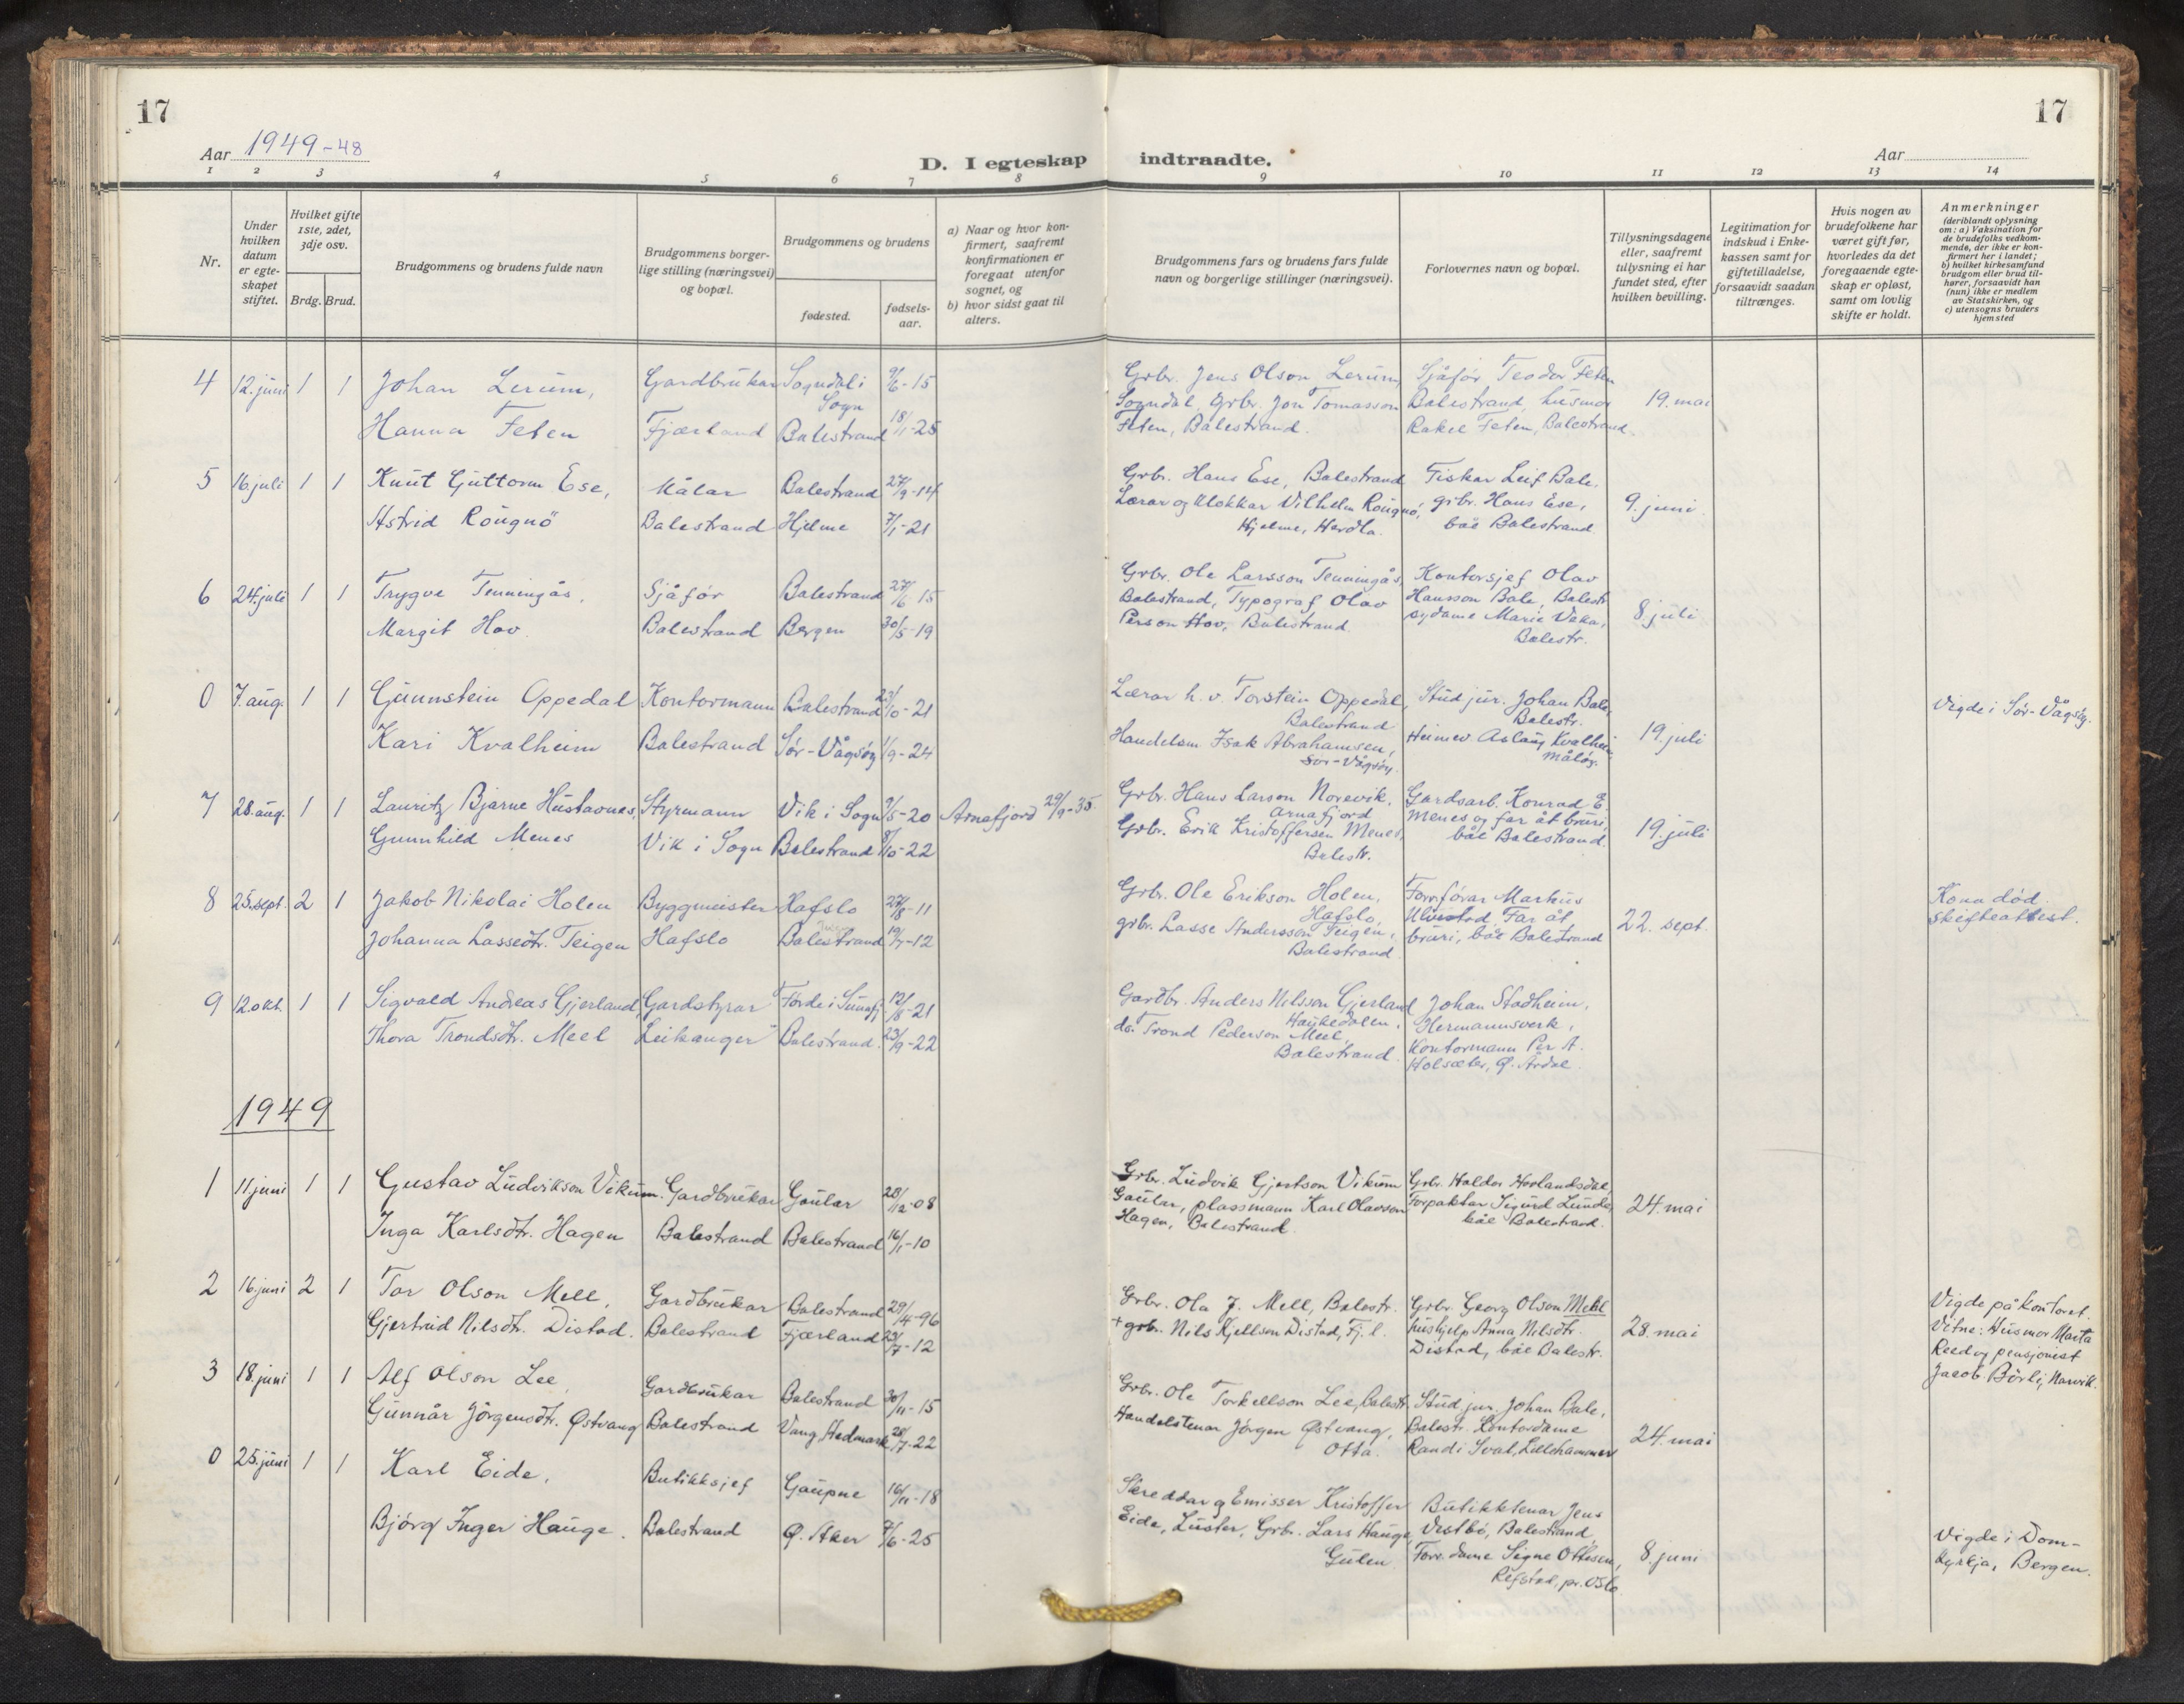 17
17
Aar 1949-48
D. I egteskap indtraadte.
Aar
1 2 3 4 5 6 7 8 9 10 11 12 13 14
Nr.
Under hvilken datum er egteskapet stiftet.
Hvilket gifte 1ste, 2det, 3dje osv.
Brdg. Brud.
Brudgommens og brudens fulde navn
Brudgommens borgerlige stilling (næringsvei) og bopæl.
Brudgommens og brudens
fødested.
fødselsaar.
a) Naar og hvor konfirmert, saafremt konfirmationen er foregaat utenfor sognet, og
b) hvor sidst gaat til alters.
Brudgommens fars og brudens fars fulde navn og borgerlige stillinger (næringsvei).
Forlovernes navn og bopæl.
Tillysningsdagene eller, saafremt tillysning ei har fundet sted, efter hvilken bevilling.
Legitimation for indskud i Enkekassen samt for giftetilladelse, forsaavidt saadan tiltrænges.
Hvis nogen av brudefolkene har været gift før, hvorledes da det foregaaende egteskap er opløst, samt om lovlig skifte er holdt.
Anmerkninger
(deriblandt oplysning om: a) Vaksination for de brudefolks vedkommende, der ikke er konfirmert her i landet;
b) hvilket kirkesamfund brudgom eller brud tilhører, forsaavidt han (hun) ikke er medlem av Statskirken, og
c) utensogns bruders hjemsted
4 12. juni 1 1 Johan Lerum, Gardbrukar Sogndal i Sogn 9/6-15
Hanna Feten Fjærland Balestrand 18/1-25
Grbr. Jens Olson Lerum,
Sogndal, Grbr. Jon Tomasson
Feten, Balestrand.
Sjåfør Teodor Feten
Balestrand, husmor
Rakel Feten, Balestrand.
19. mai
5 16. juli 1 1 Knut Guttorm Ese, Målar Balestrand 27/9-14
Astrid Rongnö Balestrand Hjelme 7/1-21
Grbr. Hans Ese, Balestrand
Lærar og klokkar Vilhelm Rongnö,
Hjelme, Herdla.
Fiskar Leif Bale,
grbr. Hans Ese,
båe Balestrand.
9. juni
6 24. juli 1 1 Trygve Tenningås, Sjåfør Balestrand 27/6-15
Margit Hov. Balestrand Bergen 30/5-19
Grbr. Ole Larsson Tenningås,
Balestrand, Typograf Olav
Person Hov, Balestrand.
Kontorsjef Olav
Hansson Bale, Balestr.
sydame Marie
Balestr.
8. juli
0 7. aug. 1 1 Gunnstein Oppedal Kontormann Balestrand 23/10-21
Kari Kvalheim Balestrand Sør-Vågsøy 1/9-24
Lærar h. v. Torstein Oppedal,
Balestrand
Handelsm. Isak Abrahamsen,
Sør-Vågsøy.
Stud. jur. Johan Bale,
Balestr.
Aslaug Kvalheim
Måløy.
19. juli
Vigde i Sør-Vågsøy.
7 28. aug. 1 1 Lauritz Bjarne Hustavnes, Styrmann Vik i Sogn 9/5-20 Arnafjord 29/9-35.
Gunnhild Menes Vik i Sogn Balestrand 8/10-22
Grbr. Hans Larson Norevik,
Arnafjord
Grbr. Erik Kristoffersen Menes,
Balestr.
Gardsarb. Konrad E.
Menes og far åt bruri,
båe Balestrand.
19. juli
8 25. sept. 2 1 Jakob Nikolai Holen Byggmeister Hafslo 27/8-11
Johanna Lassedtr. Teigen Hafslo Balestrand 19/7-12
Grbr. Ole Erikson Holen,
Hafslo,
grbr. Lasse Andersson Teigen,
Balestrand
Forrförar Markus
Ulvestad, Far åt
bruri, båe Balestrand
22. sept.
Kona död.
Skifteattest.
9 12. okt. 1 1 Sigvald Andreas Gjerland, Gardstyrar Førde i Sunnfj. 12/8-21
Thora Trondsdtr. Meel Leikanger Balestrand. 23/9-22
Gardbr. Anders Nilsson Gjerland
Haukedalen,
do. Trond Pederson Meel,
Balestrand.
Johan Stadheim,
Hermannsverk,
Kontormann Per A.
Holsæter, Ø. Årdal.
1949
1 11. juni 1 1 Gustav Ludvikson Vikum. Gardbrukar Gaular 28/12-08
Inga Karlsdtr. Hagen Balestrand Balestrand 16/1-10
Grbr. Ludvik Gjertson Vikum
Gaular, plassmann Karl Olavson
Hagen, Balestrand.
Grbr. Haldor Hovlandsdal,
Forpaktar Sigurd Lunde,
båe Balestrand.
24. mai
2 16. juni 2 1 Tor Olson Mell, Gardbrukar Balestrand 29/4-96
Gjertrud Nilsdtr. Distad. Balestrand Fjærland 23/7-12
Grbr. Ola J. Mell, Balestr.
+ grbr. Nils Kjellson Distad, Fj.l.
Grbr. Georg Olson Mell
hushjelp Anna Nilsdtr.
Distad, båe Balestr.
28. mai
Vigde på kontoret.
Vitne: Husmor Marta
Reed og pensjonist
Jacob Börli, Narvik.
3 18. juni 1 1 Alf Olson Lee, Gardbrukar Balestrand 30/11-15
Gunnår Jörgensdtr. Østvang Balestrand Vang, Hedmark 28/7-22
Grbr. Ole Torkellson Lee, Balestr.
Handelstenar Jörgen Østvang,
Otta.
Stud. jur. Johan Bale,
Balestr. Kontordame
Randi Sval, Lillehammer
24. mai
0 25. juni 1 1 Karl Eide, Butikksjef Gaupne 16/11-18
Björg Inger Hauge. Balestrand Ø. Aker 7/6-25
Skreddar og Emissær Kristoffer
Eide, Luster, Grbr. Lars Hauge,
Gulen
Butikktenar Jens
Vestbö, Balestrand
Forr.dame Signe Ottesen,
Refstad, pr. Oslo.
8. juni
Vigde i Domkyrkja, Bergen.